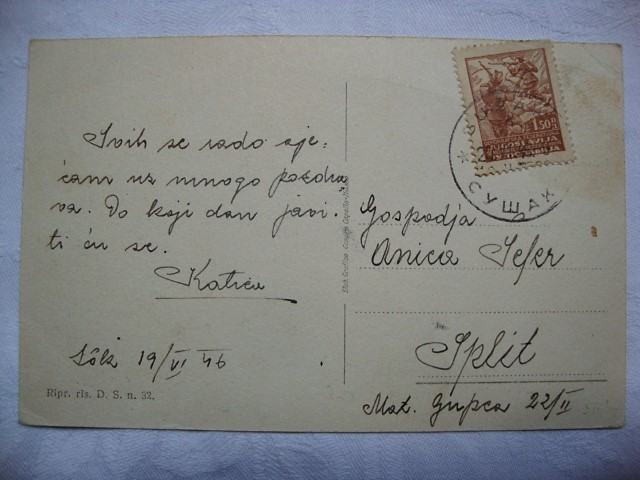 Svih se rado sje-
ćam uz mnogo pozdra
va. Do koji dan javi-
ti ću se.
Katica
19/VI 46
Ripr. ris. D. S. n. 32.
1.50 D
СУШАК
Gospodja
Anica Sefer
Split
Mat. Gupca 22/II